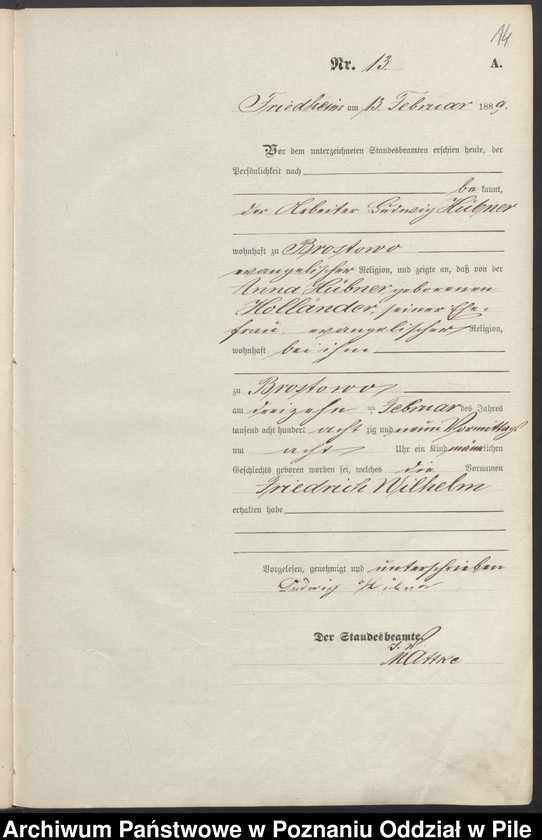 14.
Nr. 13.
A.
Friedheim am 13 Februar 1889.
Vor dem unterzeichneten Standesbeamten erschien heute, der
Persönlichkeit nach
be kannt,
der Arbeiter Ludwig Hübner
wohnhaft zu Brostowo
evangelischer Religion, und zeigte an, daß von der
Anna Hübner geborenen
Holländer, seiner Ehe-
frau evangelischer Religion,
wohnhaft bei ihm
zu Brostowo,
am dreizehn ten Februar des Jahres
tausend acht hundert acht zig und neun Vormittags
um acht Uhr ein Kind männlichen
Geschlechts geboren worden sei, welches die Vornamen
Friedrich Wilhelm
erhalten habe
Vorgelesen, genehmigt und unterschrieben
Ludwig Hübner
Der Standesbeamte.
Archiwum Państwowe w Poznaniu Oddział w Pile